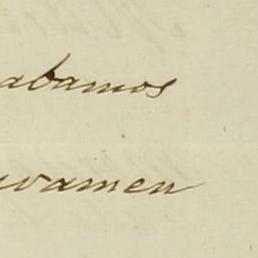 abamos
vamen